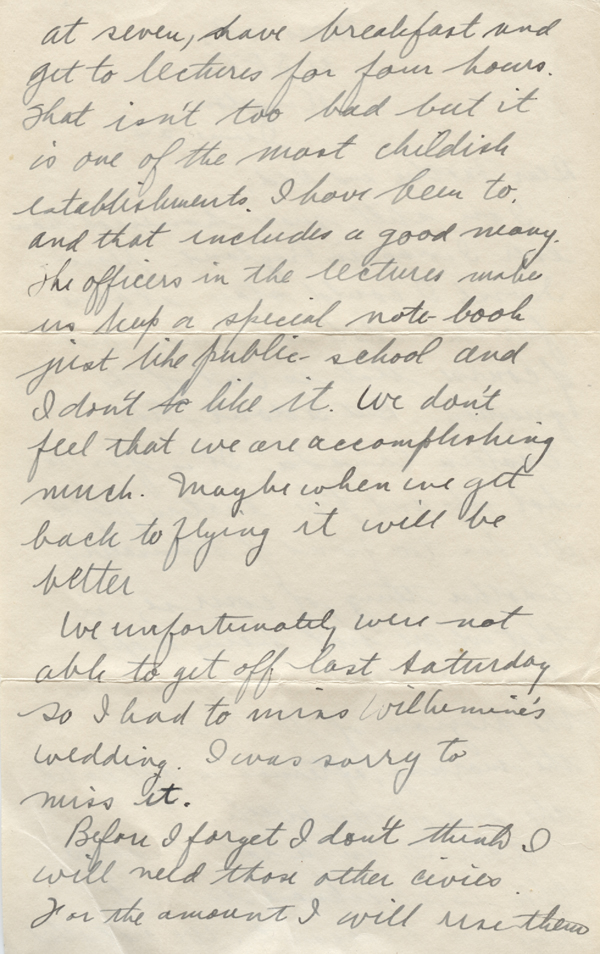 at seven, have breakfast and
get to lectures for four hours.
That isn't too bad but it
is one of the most childish
establishments. I have been to,
and that includes a good many.
The officers in the lectures make
us keep a special note book
just like public school and
I don't like it. We don't
feel that we are accomplishing
much. Maybe when we get
back to flying it will be
better
We unfortunately were not
able to get off last Saturday
so I had to miss Wilhemine's
wedding. I was sorry to
miss it.
Before I forget I don't think I
will need those other civies.
For the amount I will use them